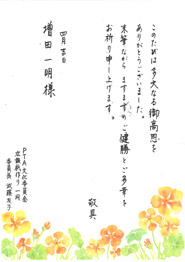 このたびは多大なる御高恩を
ありがとうございました。
末筆ながらますますのご健勝とご多幸を
お祈り申し上げます。
敬具
四月吉日
増田一明様
PTA文化委員会
広報紙作り一同
委員長 武藤友子